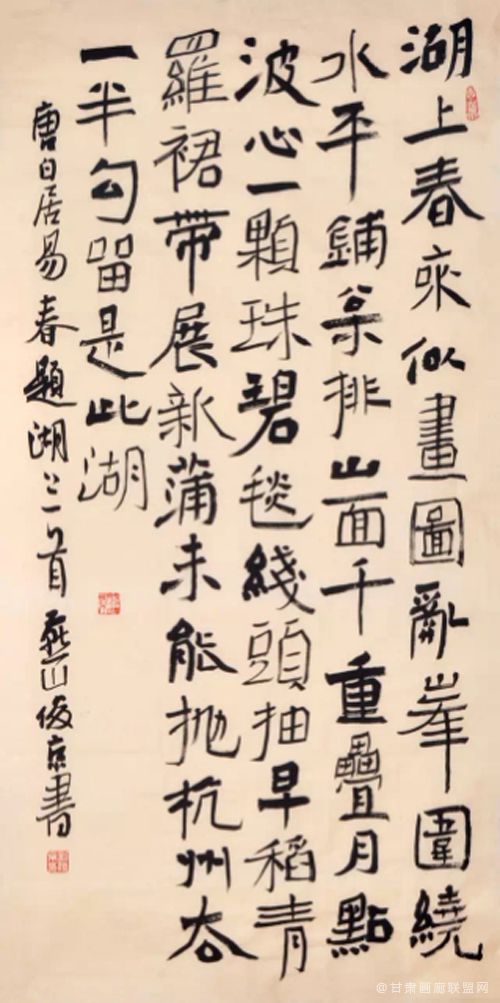 湖上春來似畫圖亂峯圍繞
水平鋪枀排山面千重疊月點
波心一顆珠碧毯綫頭抽早稻青
羅裙帶展新蒲未能拋杭州去
一半勾留是此湖
唐白居易春題湖上一首 燕山俊京書
@甘肃画廊联盟网